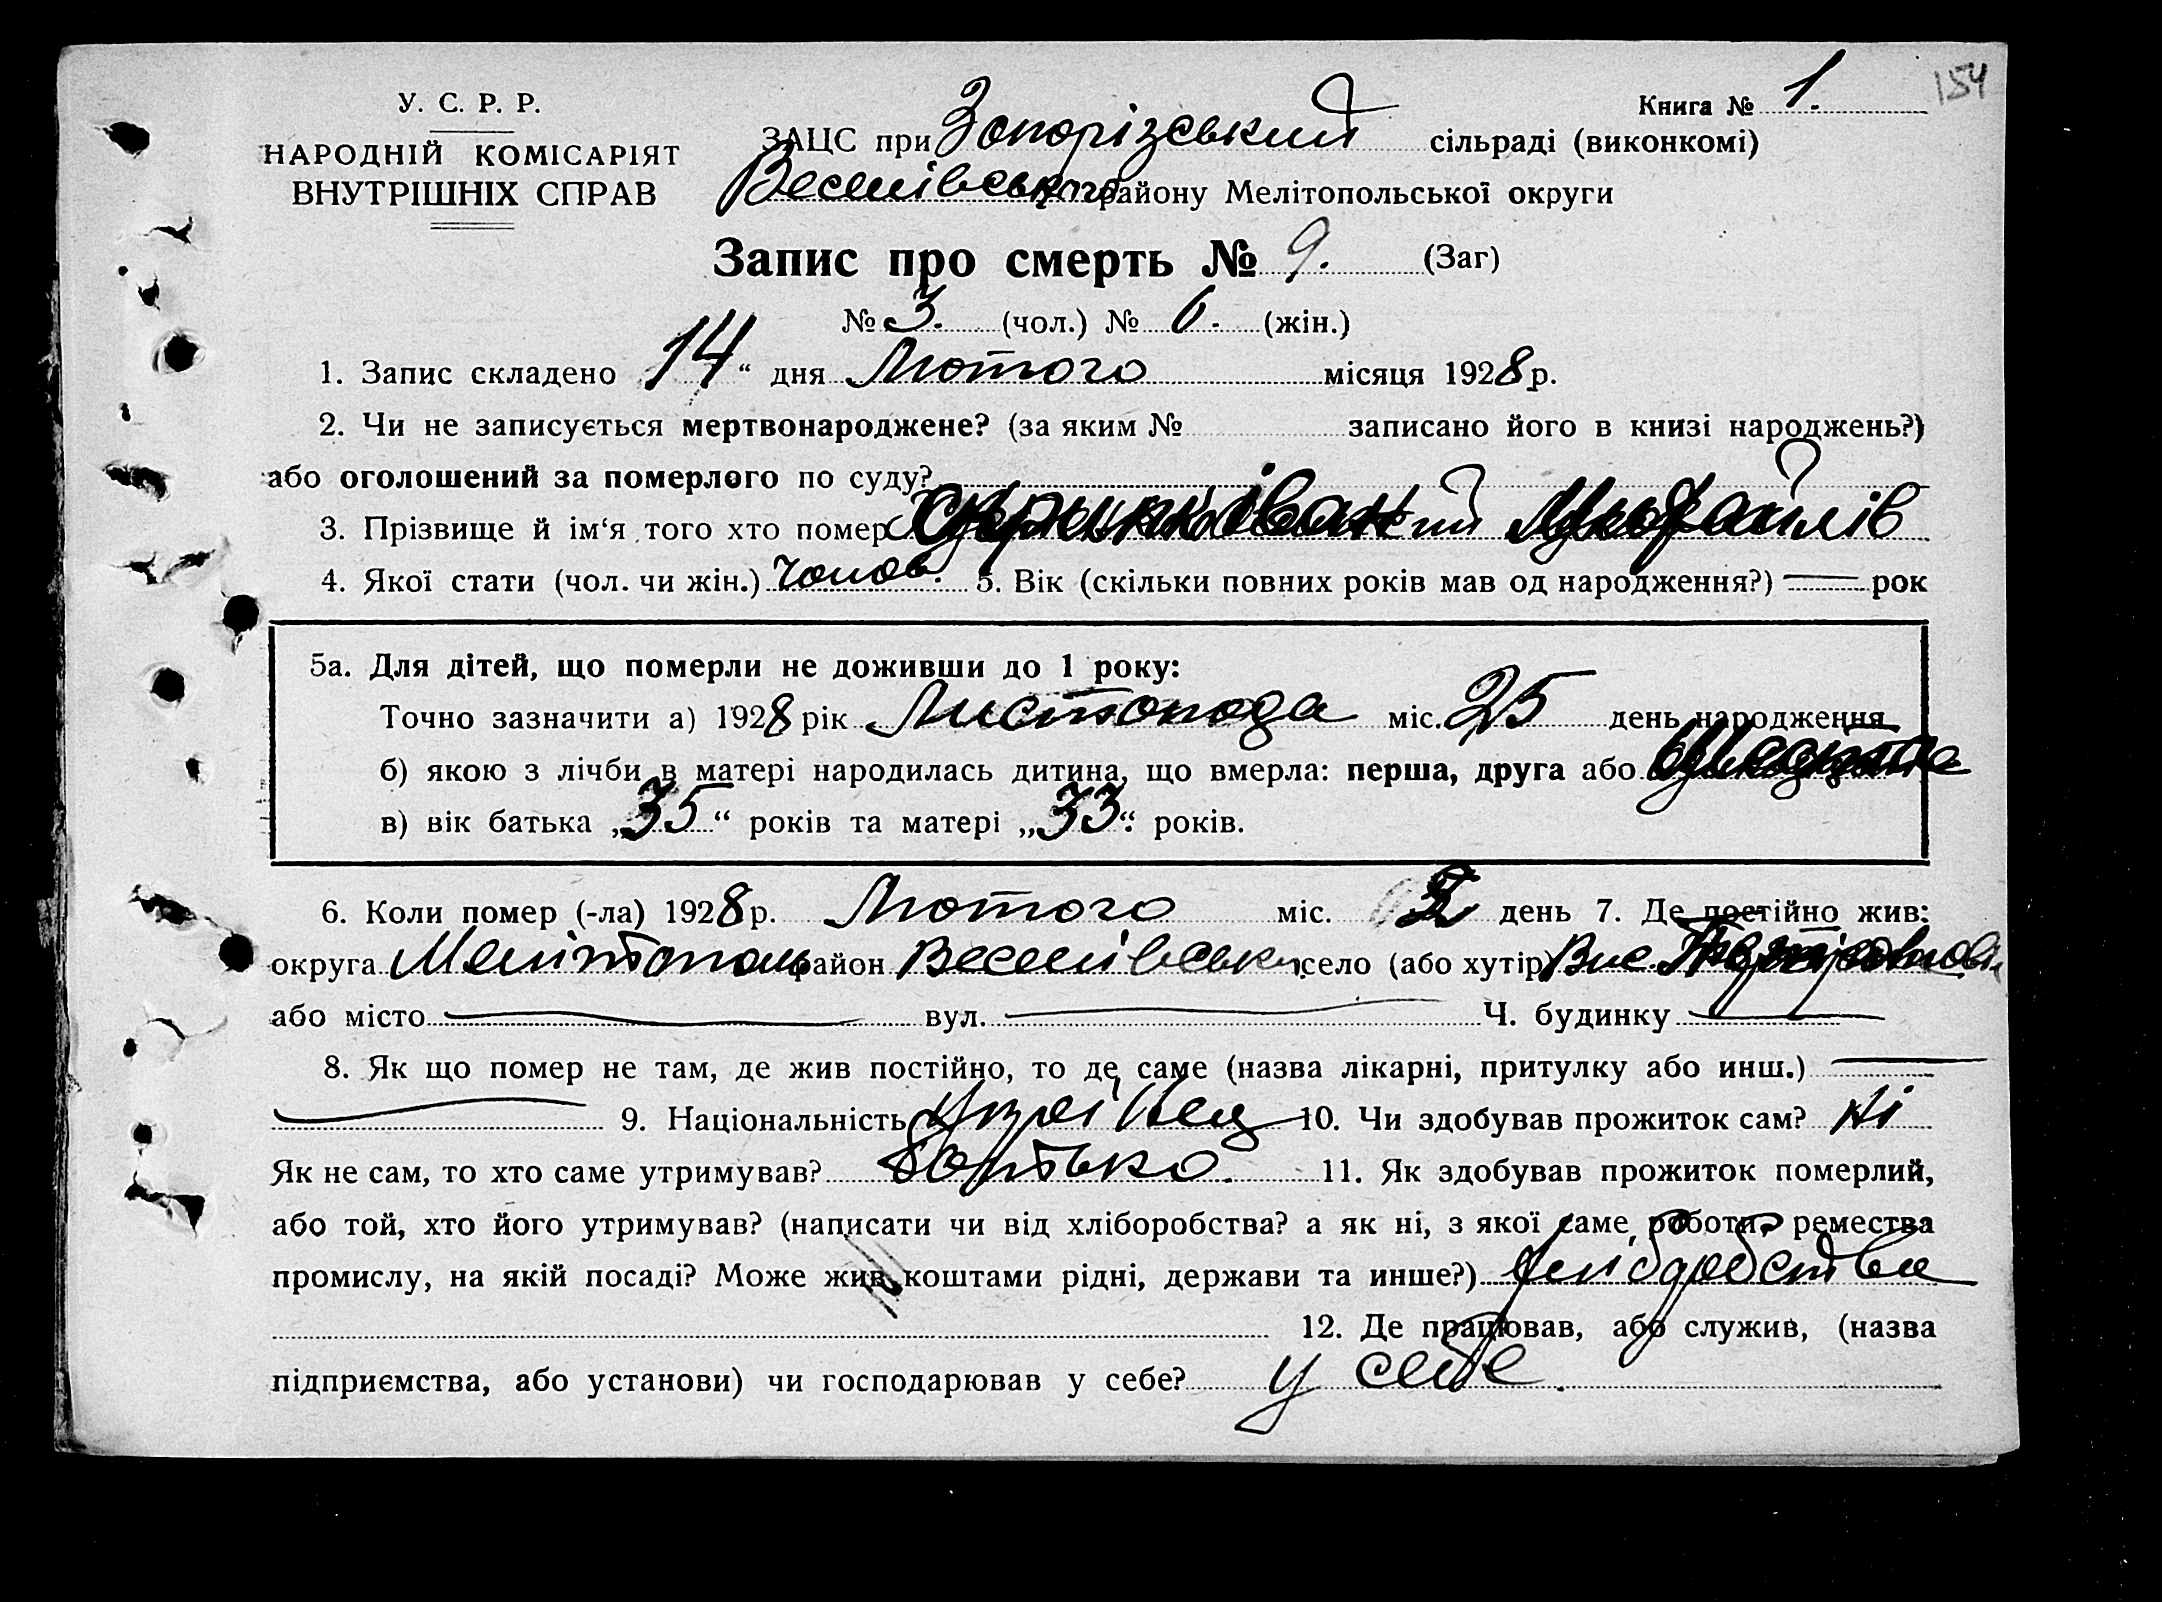 154
У. С. Р. Р.
НАРОДНІЙ КОМІСАРІЯТ
ВНУТРІШНІХ СПРАВ
Книга № 1.
ЗАЦС при Запорізський сільраді (виконкомі)
Веселівського району Мелітопольської округи
Запис про смерть № 9. (Заг)
№ 3. (чол.) № 6. (жін.)
1. Запис складено „14“ дня Лютого місяця 1928 р.
2. Чи не записується мертвонароджене? (за яким № записано його в книзі народжень?)
або оголошений за померлого по суду?
3. Прізвище й ім‘я того хто помер
4. Якої стати (чол. чи жін.) Чолов. 5. Вік (скільки повних років мав од народження?) рок
5а. Для дітей, що померли не доживши до 1 року:
Точно зазначити а) 1928 рік Листопада міс. 25 день народження
б) якою з лічби в матері народилась дитина, що вмерла: перша, друга або
в) вік батька „35“ років та матері „33“ років.
6. Коли помер (-ла) 1928 р. Лютого міс. день 7. Де постійно жив:
округа Мелітополь район Веселівськ село (або хутір) Вис.
або місто вул. Ч. будинку
8. Як що помер не там, де жив постійно, то де саме (назва лікарні, притулку або инш.)
9. Національність Українец 10. Чи здобував прожиток сам? Ні
Як не сам, то хто саме утримував? Батько. 11. Як здобував прожиток померлий,
або той, хто його утримував? (написати чи від хліборобства? а як ні, з якої саме роботи, ремества
промислу, на якій посаді? Може жив коштами рідні, держави та инше?)
12. Де працював, або служив, (назва
підприємства, або установи) чи господарював у себе? у себе.